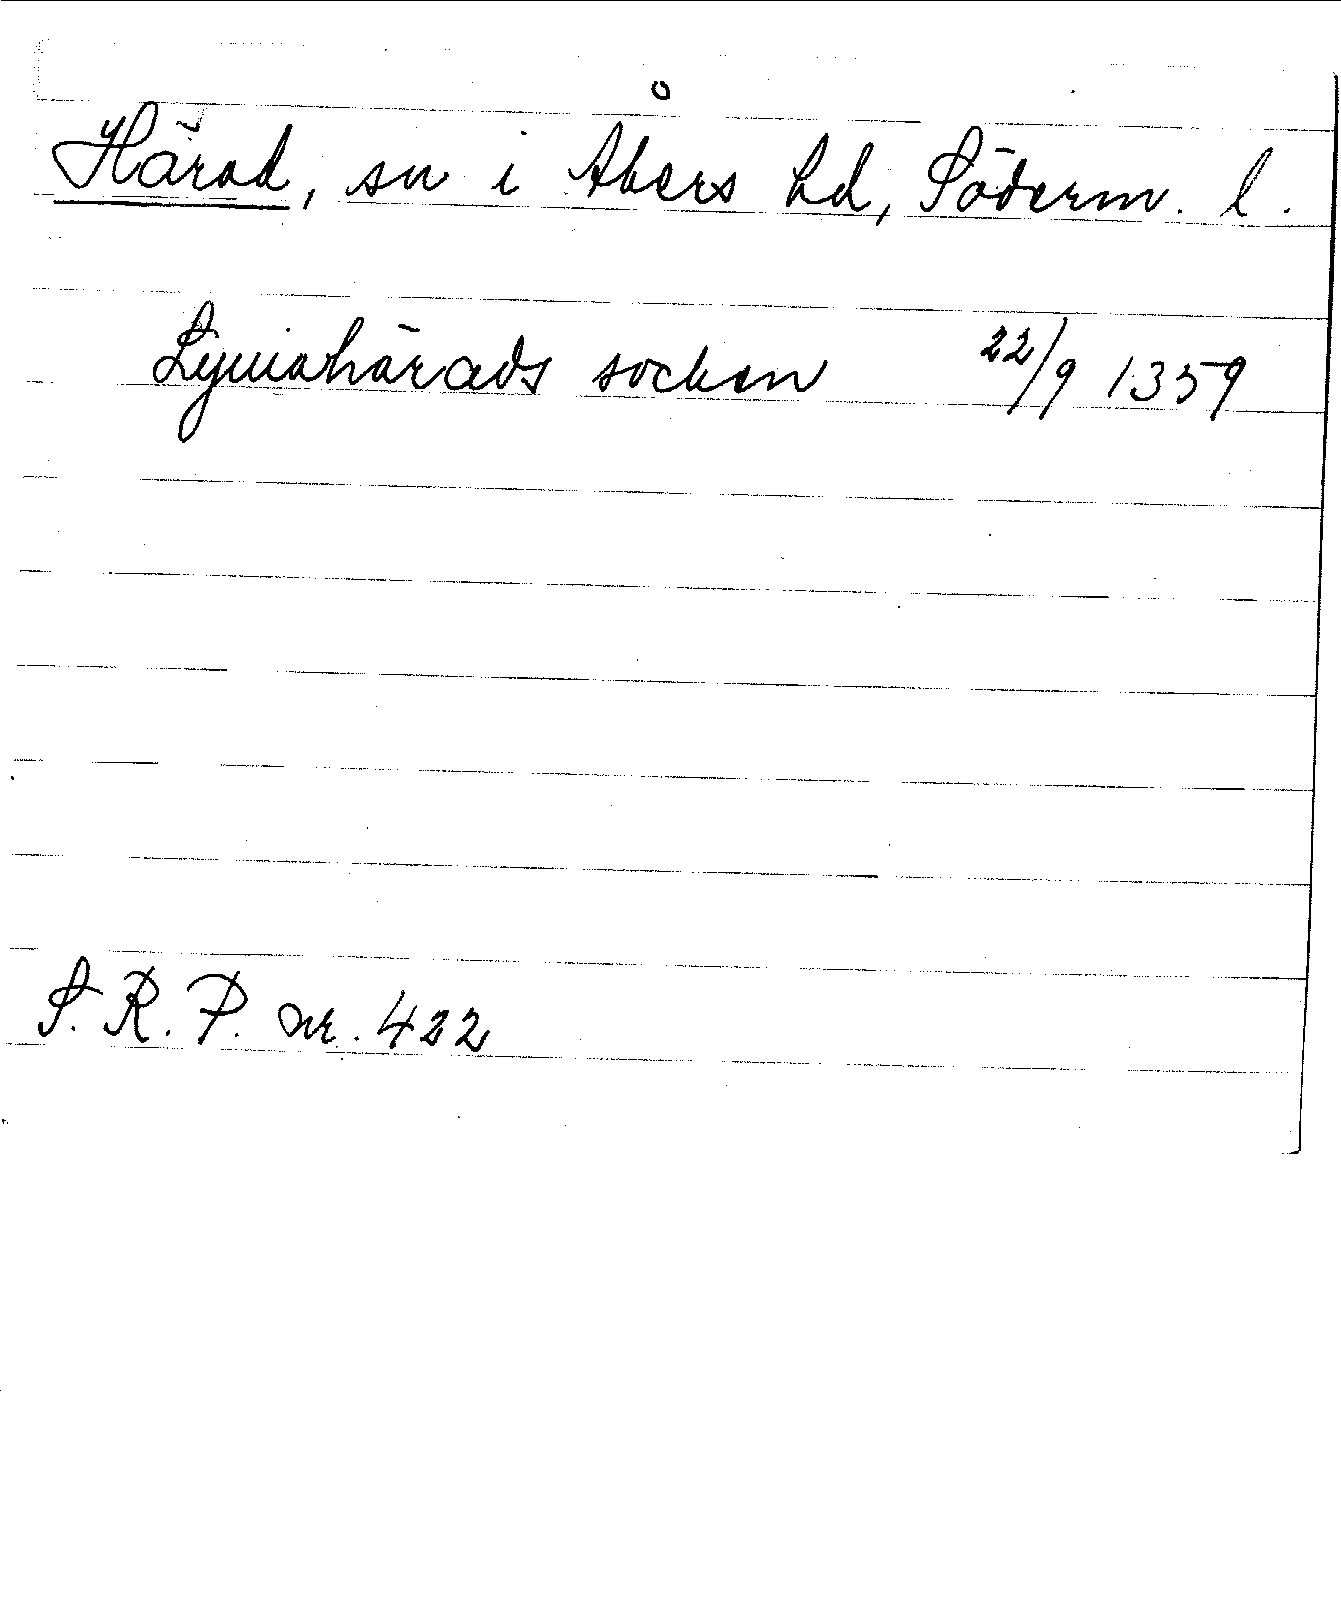 Härad, sn i Åkers hd, Söderm. l.
Lyuiahärads sockan 22/9 1359
S. R. P. nr. 422